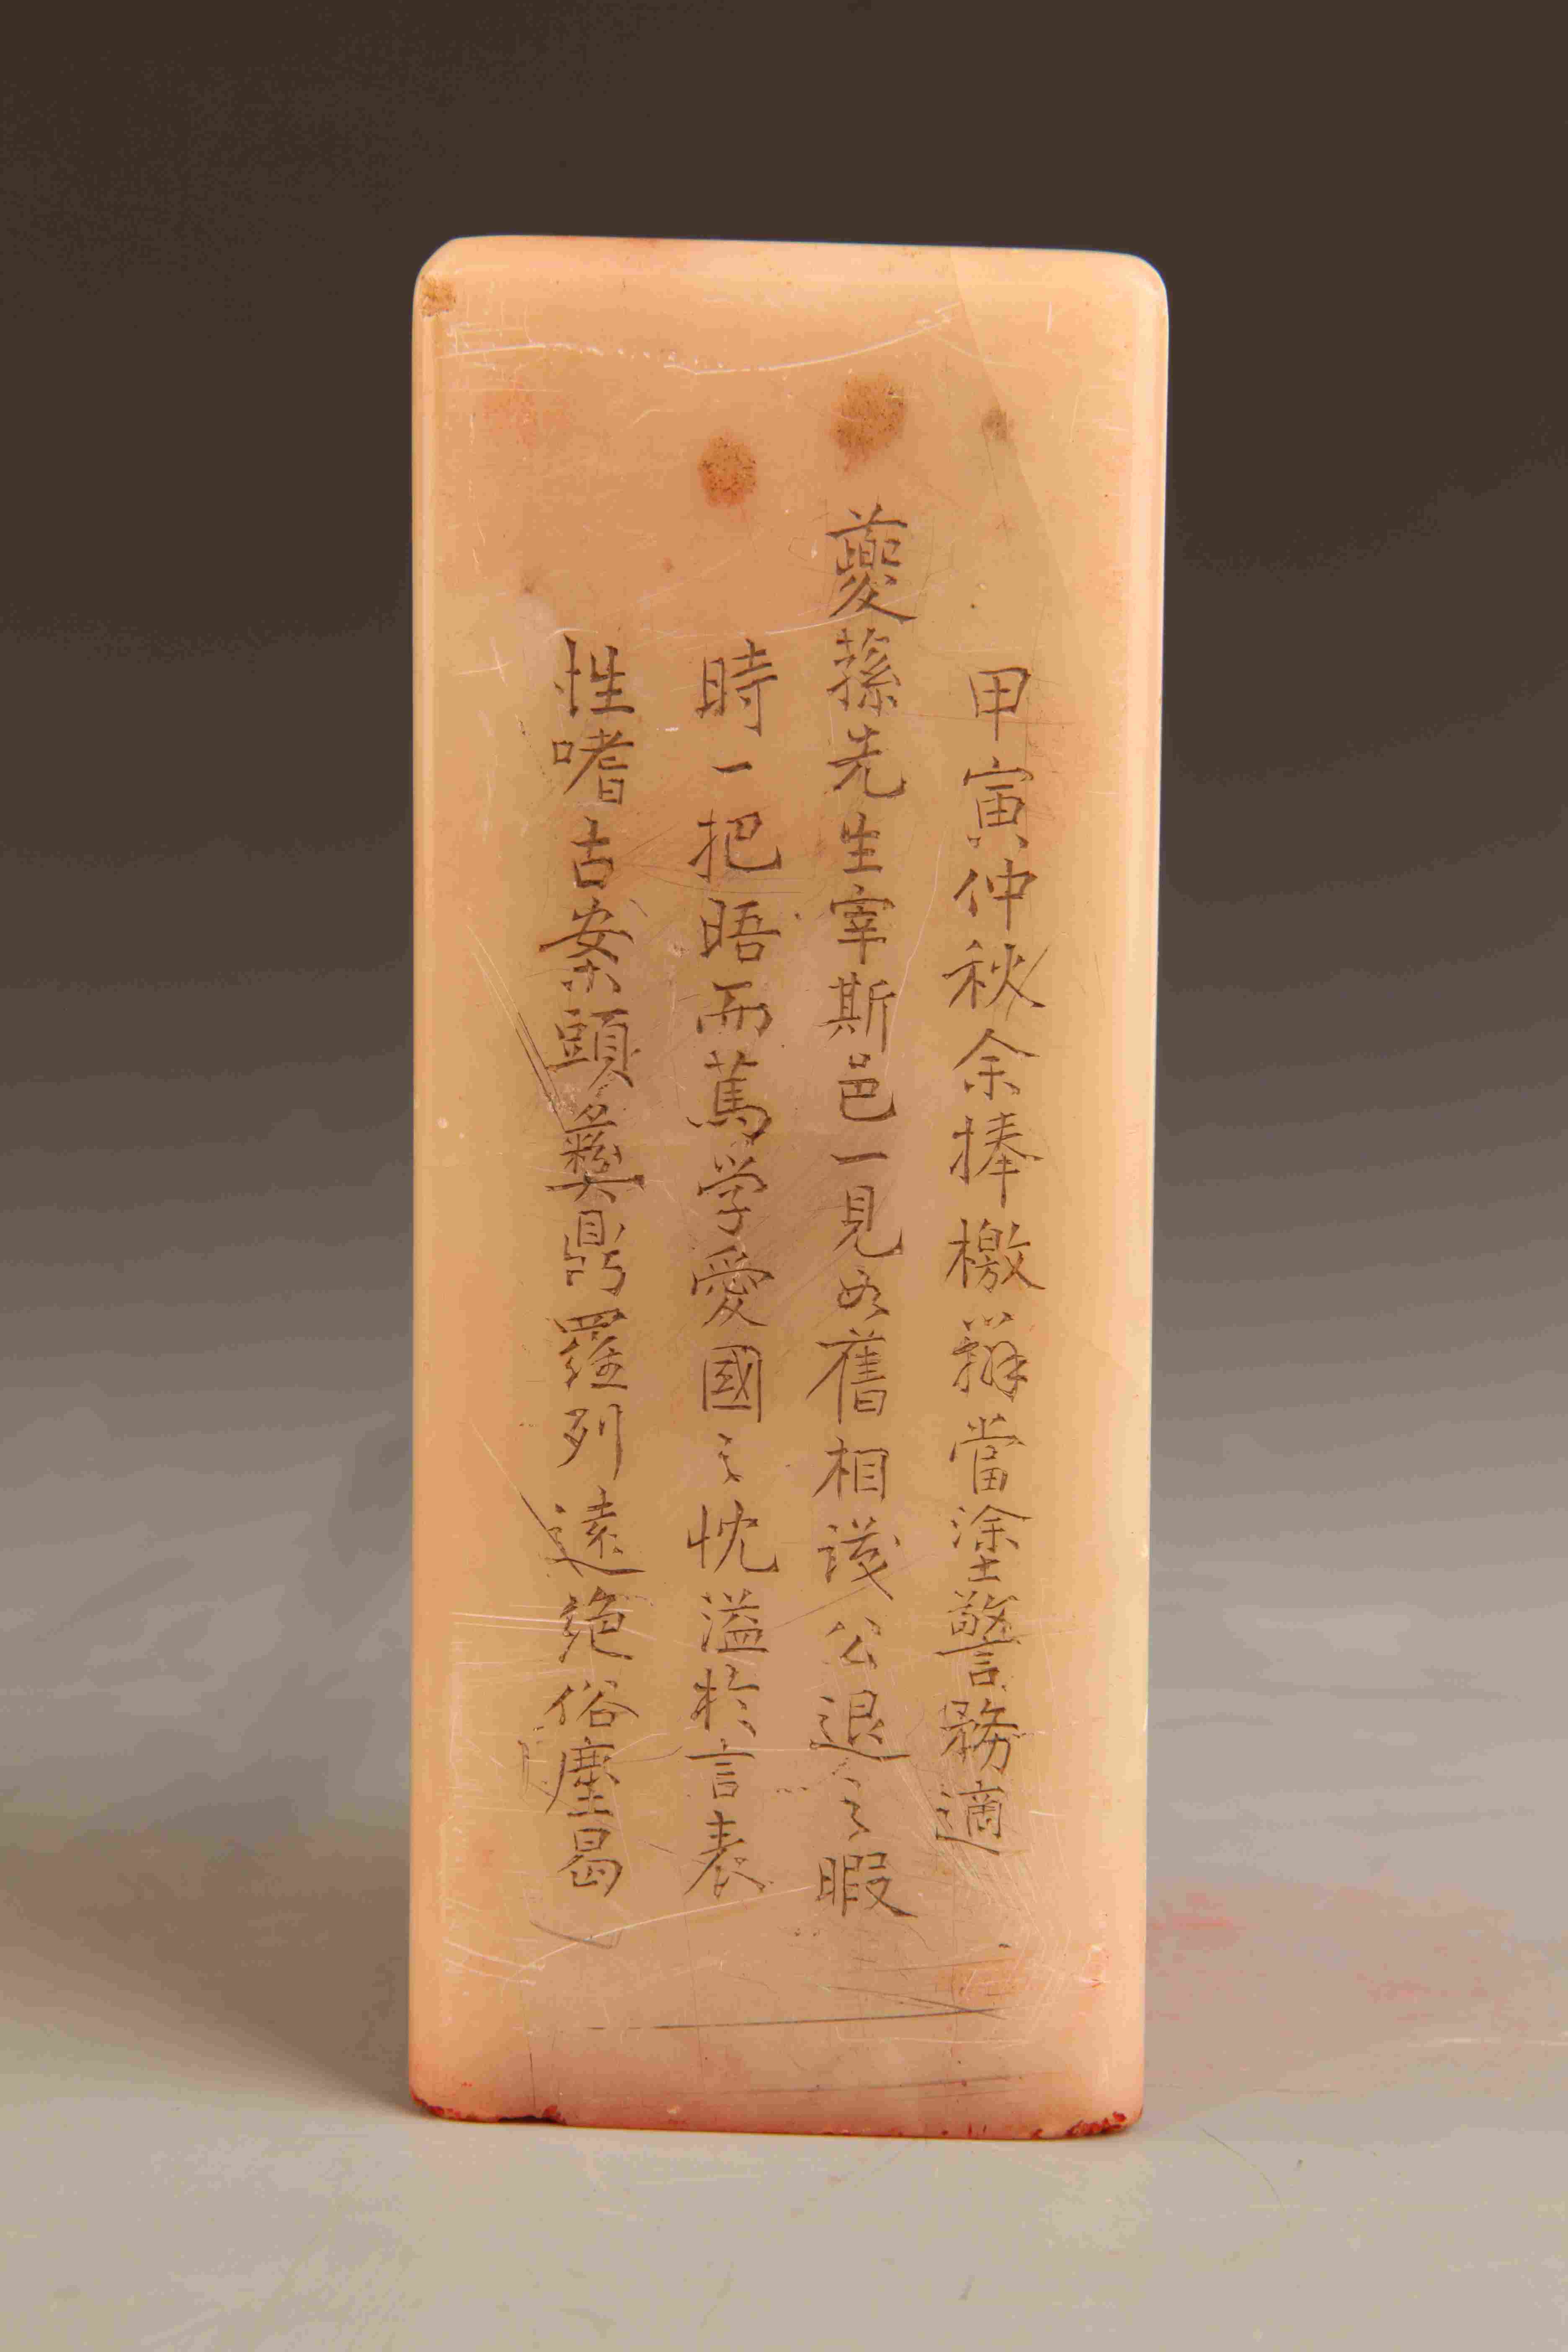 甲寅仲秋余捧檄辦當塗警務適
夔蓀先生宰斯邑一見如舊相識公退之暇
時一把晤而篤学愛國之忱溢於言表
性嗜古案頭彝鼎羅列遠絶俗塵曷